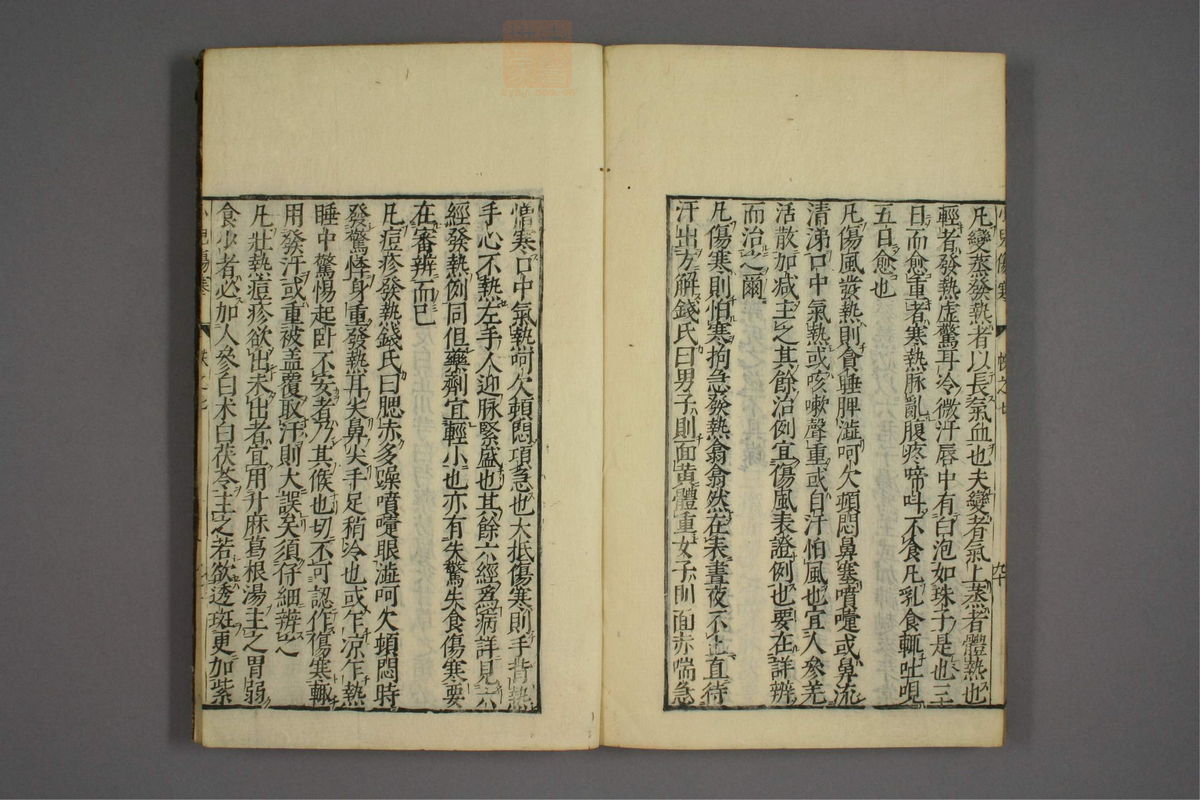 凡變蒸發熱者以長氣血也夫變者氣上蒸者體熱也
輕者發熱虛驚耳冷微汗唇中有白泡如珠子是也三
日而愈重者寒熱脉亂腹疼啼叫不食凡乳食輒吐哯
五日愈也
凡傷風發熱則貪睡脾澁呵欠頓悶鼻塞噴嚏或鼻流
清涕口中氣熱或咳嗽聲重或自汗怕風也宜人參羌
活散加减主之其餘治例宜傷風表證例也要在詳辨
而治之爾
凡傷寒則怕寒拘急發熱翕翕然在表晝夜不止直待
汗出方解錢氏曰男子則面黄體重女子則面赤喘急
憎寒口中氣熱呵欠頓悶項急也大抵傷寒則手背熱
手心不熱左手人迎脉緊盛也其餘六經爲病詳見六
經發熱例同但藥劑宜輕小也亦有失驚失食傷寒要
在審辨而已
凡痘疹發熱錢氏曰腮赤多躁噴嚏眼澁呵欠頓悶時
發驚悸身重發熱耳尖鼻尖手足稍冷也或乍凉乍熱
睡中驚惕起卧不安者乃其候也切不可認作傷寒輙
用發汗或重被盖覆取汗則大誤矣須仔細辨之
凡壯熱痘疹欲出未出者宜用升麻葛根湯主之胃弱
食少者必加人參白术白茯苓主之若欲透斑更加紫
小兒傷寒